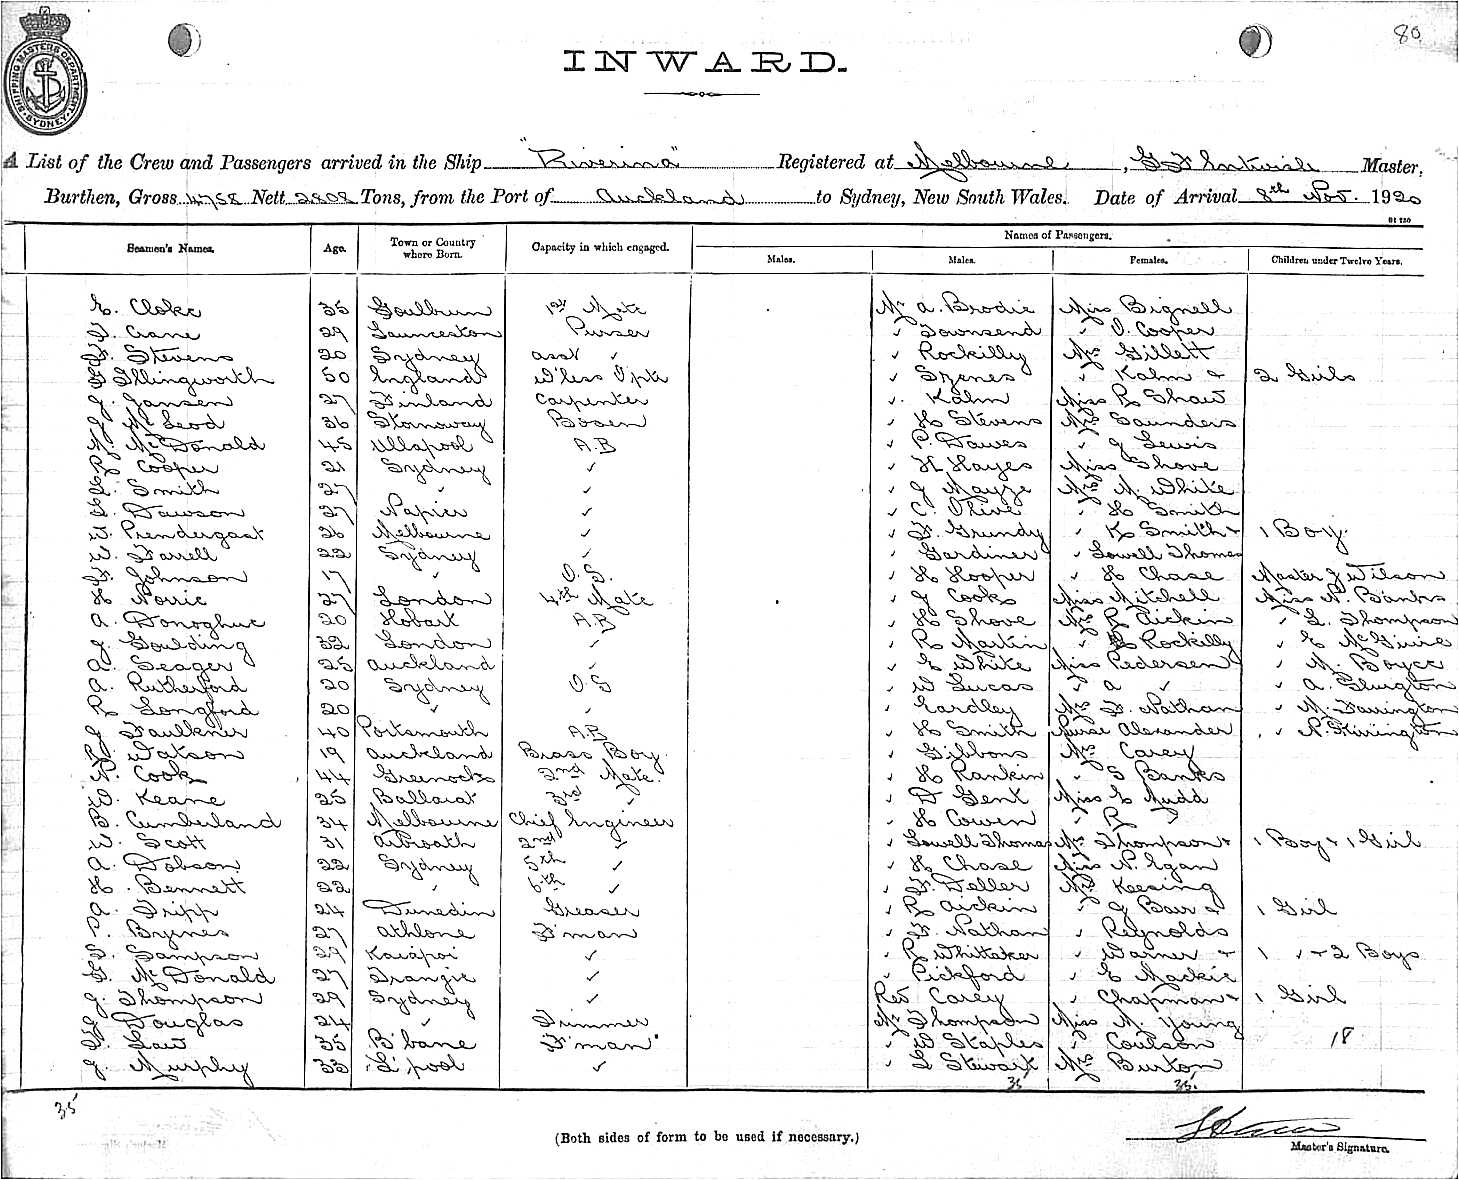 80
SHIPPING MASTERS DEPARTMENT SYDNEY
INWARD.
A List of the Crew and Passengers arrived in the Ship "Riverina" Registered at Melbourne, Master,
Burthen, Gross 4758 Nett 2808 Tons, from the Port of Auckland to Sydney, New South Wales. Date of Arrival 8th Nov. 1920
Names of Passengers.
Seamen's Names. Age. Town or Country where Born. Capacity in which engaged. Males. Males. Females. Children under Twelve Years.
E. Cloke 35 Goulburn 1st Mate Mr A. Brodie Miss Bignell
Crane 29 Launceston Purser " Townsend " O. Cooper
F. Stevens 20 Sydney asst " " Rockilly Mrs Gillett
G Illingworth 50 England W'less Optr " Syenes " Kahn + 2 Girls
J. Jansen 27 Finland Carpenter " Kahn Miss R Shaw
J McLeod 36 Stornoway Bosen " H Stevens Mrs Saunders
McDonald 45 Ullapool A.B " P. Dawes " J Lewis
R Cooper 21 Sydney " " H Hayes Miss Shove
Smith 27 " " " J Mayze Mrs N. White
Dawson 27 Napier " " C. Olive " H Smith
W. Prendergast 26 Melbourne " " F. Grundy " K Smith + 1 Boy.
W. Farrell 22 Sydney " " Gardiner " Lowell Thomas
F. Johnson 17 " O.S. " H Hooper " H Chase Master J Wilson
H Norrie 27 London 4th Mate " J Cooks Miss Mitchell Miss N. Banks
A. Donoghue 20 Hobart A.B " H Shove Mrs R Aickin " L. Thompson
J. Goulding 32 London " " R Martin " Rockilly " E McGuire
A. Seager 25 Auckland " " E White Miss Pedersen " M. Boyce
A. Rutherford 20 Sydney O S " W Lucas " A " " A.
R Longford 20 " " " Eardley Mrs F. Nathan " M. Farrington
J Faulkner 40 Portsmouth A.B " H Smith Nurse Alexander " R.
R. Watson 19 Auckland Brass Boy " Gibbons Mrs Carey
N. Cook 44 Greenock 2nd Mate. " H Rankin " S Banks
W. Keane 25 Ballarat 3rd " " D Gent Miss E Mudd
B. Cumberland 34 Melbourne Chief Engineer " H Cowen " R "
W. Scott 31 Arbroath 2nd " " Lowell Thomas Mrs Thompson + 1 Boy + 1 Girl
A. Dobson 22 Sydney 5th " " H Chase Miss N. Egan
H. Bennett 22 " 6th " " F. Deller Mrs Keesing
A. Tripp 24 Dunedin Greaser " R Aickin " J Barr + 1 Girl
P. Byrnes 27 Athlone F'man " F. Nathan " Reynolds
Sampson 29 Kaiapoi " " R Whittaker " Warner + 1 " + 2 Boys
G. McDonald 27 Trangie " " Pickford " E Mackie
J. Thompson 29 Sydney " Rev Carey " Chapman + 1 Girl
J Douglas 24 " Trimmer Mr Thompson Miss M. Young
Law 35 B'bane F'man " W Staples " Coulson 18
J. Murphy 33 L'pool " " L Stewart Mrs Burton
35 35. 35
(Both sides of form to be used if necessary.)
Master's Signature.